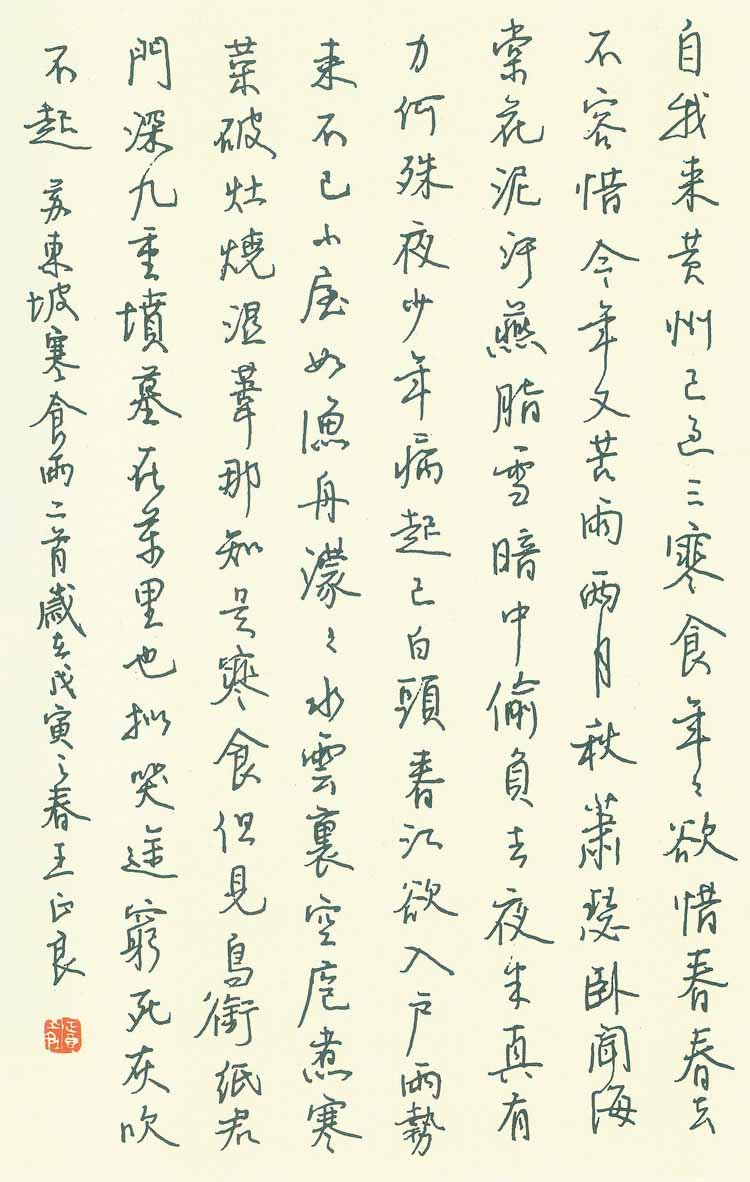 自我来黄州已過三寒食年々欲惜春春去
不容惜今年又苦雨兩月秋蕭瑟卧聞海
棠花泥汙燕脂雪暗中偷負去夜半真有
力何殊夜少年病起已白頭春江欲入户雨勢
来不已小屋如漁舟濛々水雲裏空庖煮寒
菜破灶燒濕葦那知是寒食但見烏銜紙君
門深九重墳墓在萬里也拟哭途窮死灰吹
不起 蘇東坡寒食雨二首歲在戊寅之春王正良